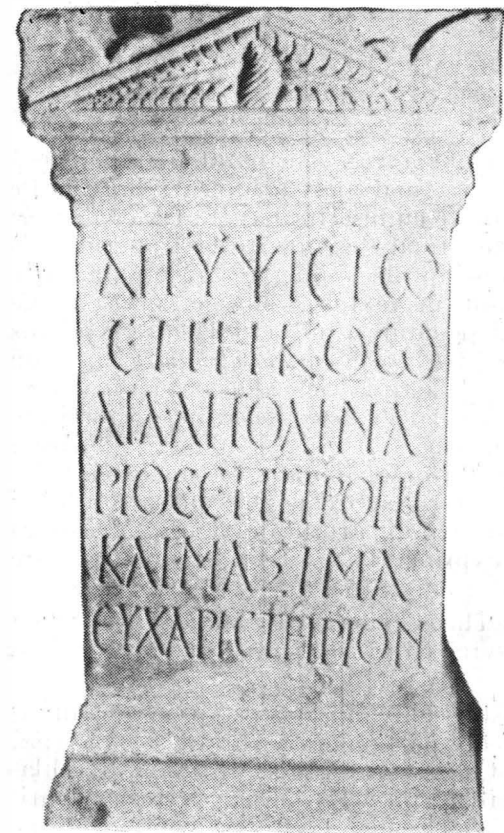 ΔΙΙ ΥΨΙϹΤΩ
ΕΠΗΚΟΩ
ΑΙΛ·ΑΠΟΛΙΝΑ
ΡΙΟϹ ΕΠΙΤΡΟΠϹ
ΚΑΙ·ΜΑΞΙΜΑ
ΕΥΧΑΡΙϹΤΗΡΙΟΝ